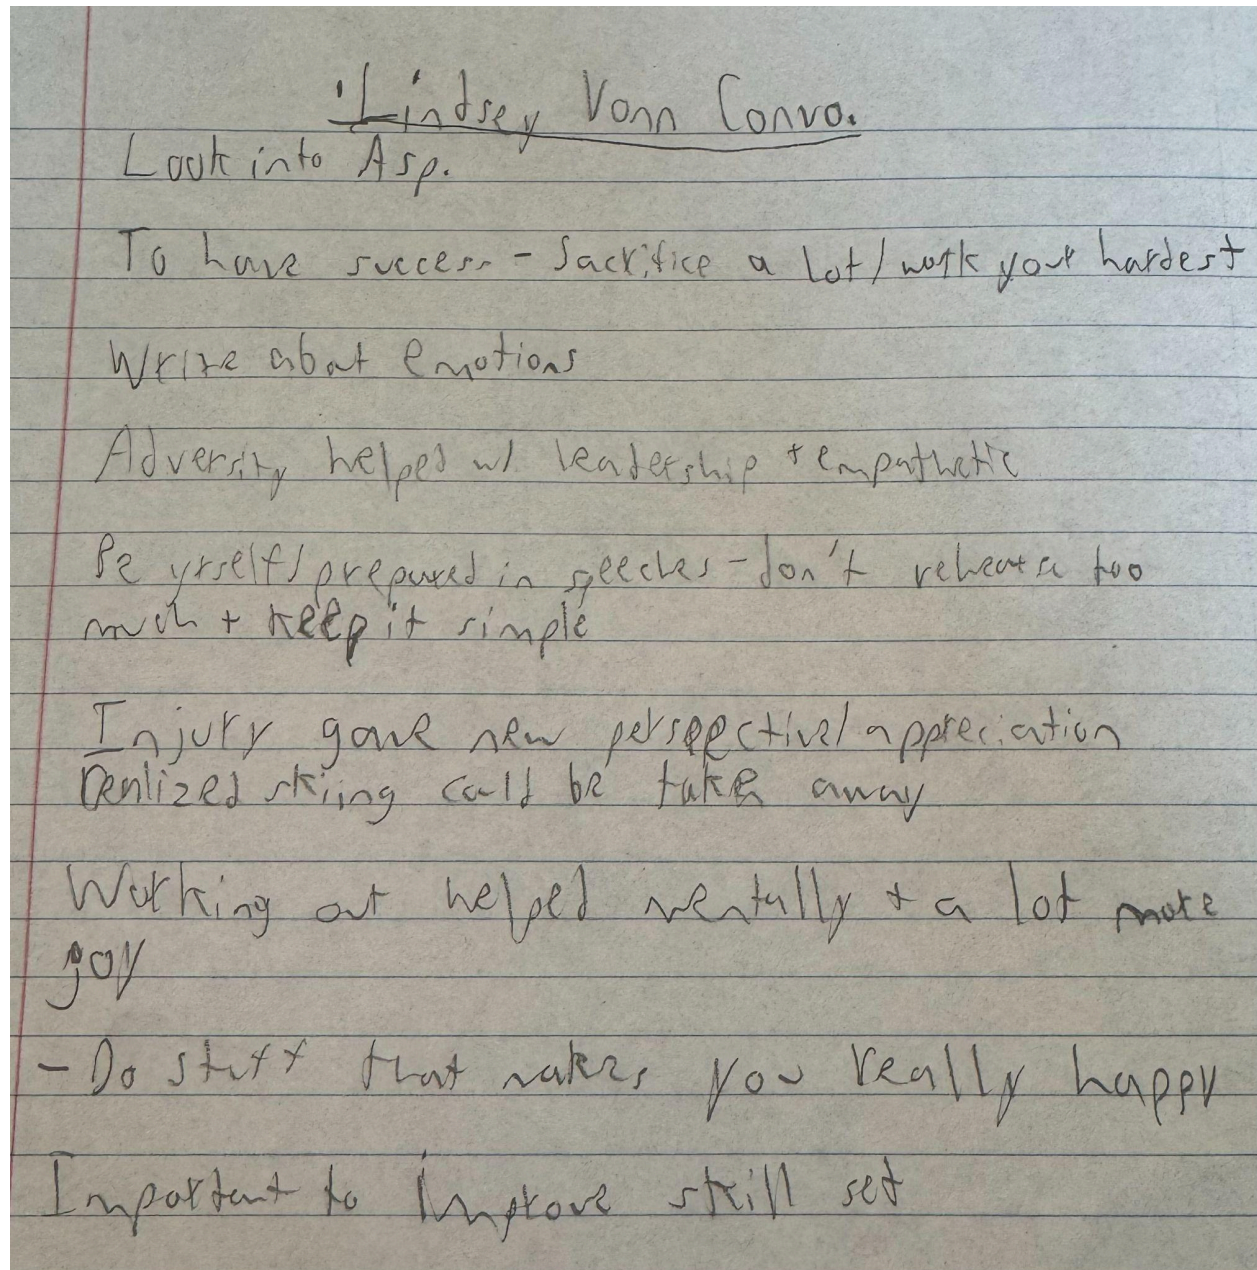 Lindsey Vonn Convo.
Look into Asp.
To have success - Sacrifice a lot/work your hardest
Write about emotions
Adversity helped w/ leadership + empathetic
Be yrself/prepared in speeches - don't rehearse too
much + keep it simple
Injury gave new perspective/appreciation
Realized skiing could be taken away
Working out helped mentally + a lot more
joy
- Do stuff that makes you really happy
Important to improve skill set